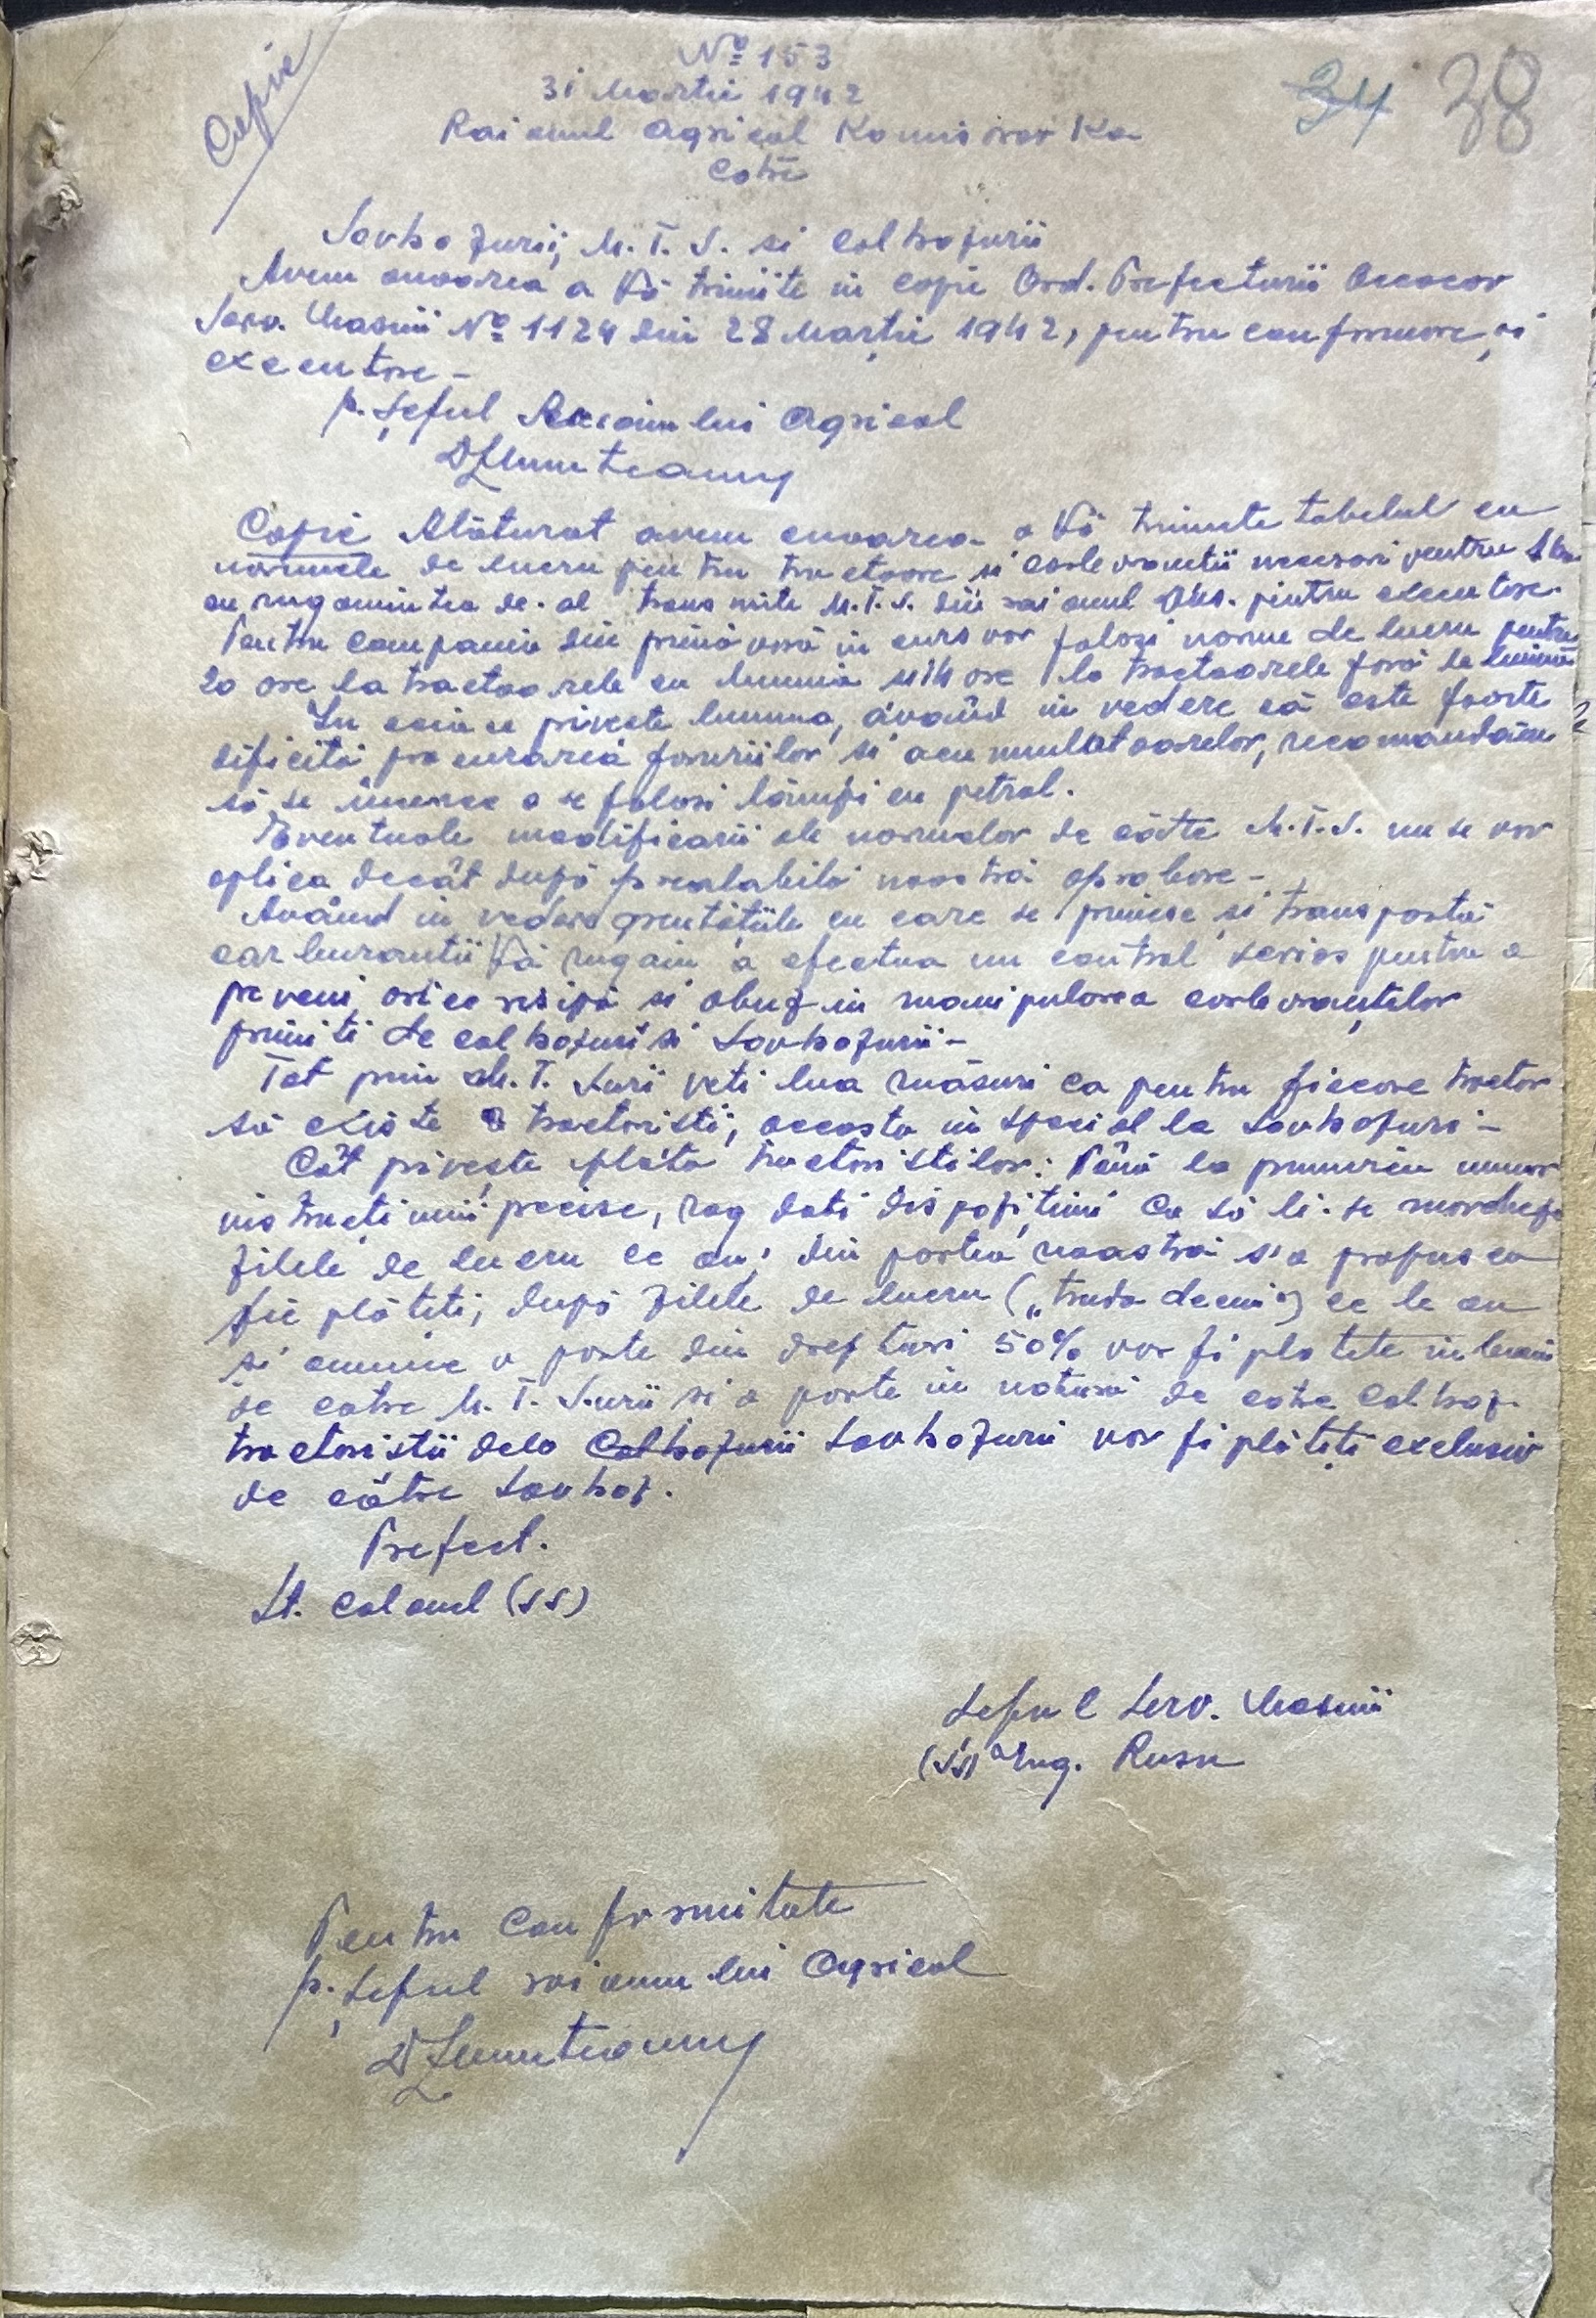 Copie
34 38
Nº 153
31 Martie 1942
Raionul Agricol Komisarovka
Către
Sovhozurii, M.T.S. si Colhozurii
Avem onoarea a Vă trimite in copie Ord. Prefecturii Oceacov
Serv. Masini Nº 1124 din 28 Martie 1942, pentru conformare și
executare -
p. Șeful Raionului Agricol
D Munteanu
Copie Alăturat avem onoarea a Vă trimite tabelul cu
normele de lucru pentru tractoare si carburantii necesari pentru 1 ha.
cu rugamintea de-al transmite M.T.S. din raionul Dvs. pentru executare.
Pentru campania din primăvară in curs vor folosi norme de lucru pentru
20 ore la tractoarele cu lumină si 14 ore la tractoarele fără de lumină
In ceia ce priveste lumina, având in vedere că este foarte
dificilă procurarea farurilor si acumulatoarelor, recomandăm
să se incerce a se folosi lămpi cu petrol.
Eventuale modificarii ale normelor de către M.T.S. nu se vor
aplica decât după prealabila noastră aprobare -
Având in vedere greutățiile cu care se primesc și transportă
carburantii Vă rugăm a efectua un control serios pentru a
preveni orice risipă si abuz in manipularea carburanților
primiti de colhozuri si Sovhozurii -
Tot prin M.T. Surii veti lua măsuri ca pentru fiecare tractor
să existe tractoristi, aceasta in special la Sovhozuri -
Cât privește plata tractoristilor: Până la primirea unor
instrucțiuni precise, rog dati dispozițiuni Ca să li-se
zilele de lucru ce au; din partea noastră s'a propus ca
fie plătiti, după zilele de lucru („truda deeni") ce le au
si anume o parte din drepturi 50% vor fi platite in bani
de catre M.T. Surii si o parte in natură de către Colhoz.
tractoristii dela Colhozurii Sovhozurii vor fi plătiți exclusiv
de către Sovhoz.
Prefect.
Lt. Colonel (SS)
Seful Serv. Masinii
(SS) Ing. Rusu
Pentru Conformitate
p. Șeful raionului Agricol
D Munteanu